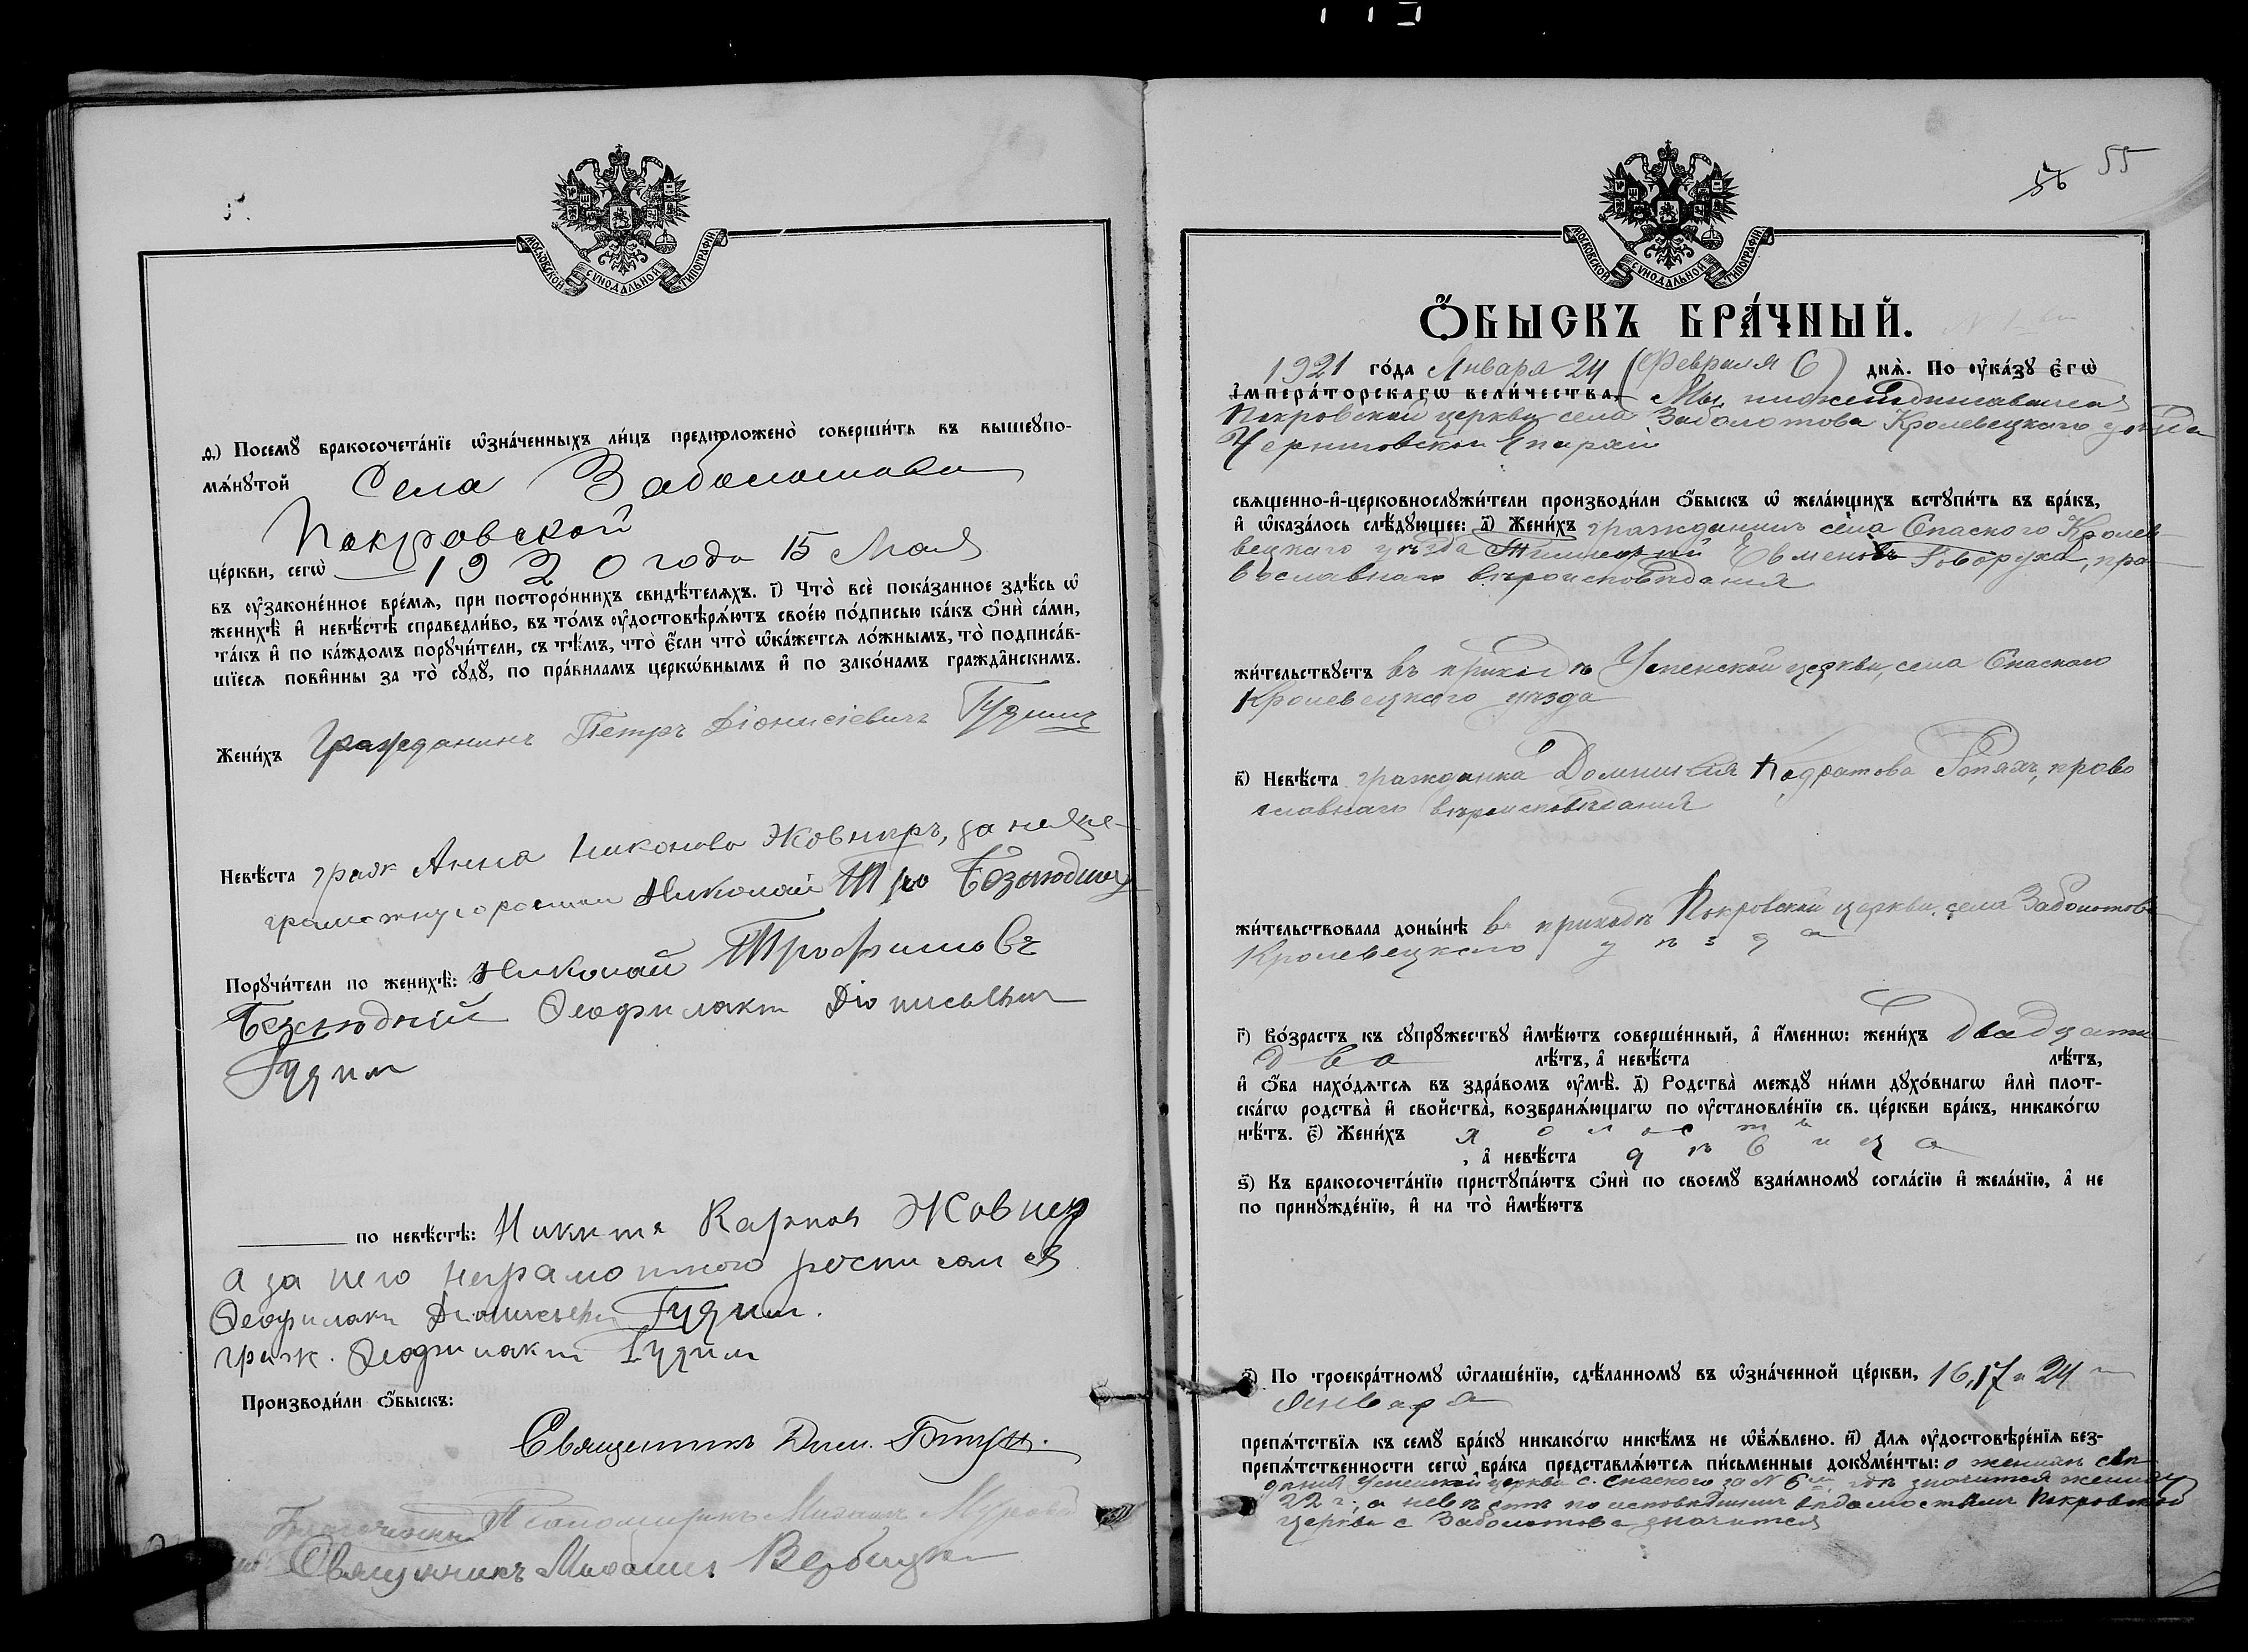 МОСКОВСКОЙ СѴНОДАЛЬНОЙ ТИПОГРАФІИ
д҃.) Посемꙋ̀ бракосочета́нїе ѡ҆зна́ченныхъ ли́цъ предположено̀ соверши́ть въ вышеꙋпо-
мѧ́нꙋтой Села Заболотова
Покровской
це́ркви, сегѡ̀ 1920 года 15 Мая
въ ᲂу҆зако́ненное вре́мѧ, при посторо́ннихъ свидѣ́телѧхъ. і҃) Что̀ всѐ пока́занное здѣ́сь ѡ҆
женихѣ̀ и҆ невѣ́стѣ справедли́во, въ то́мъ ᲂу҆достовѣрѧ́ютъ свое́ю по́дписью ка́къ ѻ҆нѝ са́ми,
та́къ и҆ по ка́ждомъ порꙋчи́тели, съ тѣ́мъ, что̀ є҆́сли что̀ ѡ҆ка́жетсѧ ло́жнымъ, то̀ подписа́в-
шїесѧ пови́нны за то̀ сꙋдꙋ̀, по пра́виламъ церко́внымъ и҆ по зако́намъ гражда́нскимъ.
Жени́хъ Гражданинъ Петръ Діонисіевичъ Гудимъ
Невѣ́ста граж Анна Никонова Жовнеръ, за нея не-
грамотную росписи Николай Тро Безлюдный
Порꙋчи́тели по женихѣ̀: Николай Трофимовъ
Безлюдній Феофилакт Діонисьевич
Гудим
по невѣ́стѣ: Никита Карпов Жовнер
а за него неграмотного росписался
Феофилакт Діонисьевич Гудим.
граж. Феофилакт Гудим
Производи́ли ѻ҆́быскъ:
Священникъ
Псаломщикъ Михаилъ
Священникъ Михаилъ Вербицкій
5̶6̶ 55
МОСКОВСКОЙ СѴНОДАЛЬНОЙ ТИПОГРАФІИ
Ѻ҆́БЫСКЪ БРА́ЧНЫЙ.
1921 го́да Января 24 (Февраля 6) днѧ̀. По ᲂу҆ка́зꙋ є҆гѡ̀
і҆мпера́торскагѡ вели́чества, Мы, нижеподписавшіеся
Покровской церкви села Заболотова Кролевецкаго уѣзда
Черниговской Епархіи
свѧще́нно-и҆-церковнослꙋжи́тели производи́ли ѻ҆́быскъ ѡ҆ жела́ющихъ встꙋпи́ть въ бра́къ,
и҆ ѡ҆каза́лось слѣ́дꙋющее: а҃) Жени́хъ гражданинъ села Спаского Кролев-
вецкаго уѣзда Тимофей Евменовъ Говоруха, пра-
вославнаго вѣроисповѣданія
жи́тельствꙋетъ въ приходѣ Успенской церкви, села Спаского
Кролевецкаго уѣзда
в҃) Невѣ́ста гражданка Домникія Кодратова православ
славнаго вѣроисповѣданія
жи́тельствовала доны́нѣ въ приходѣ Покровской церкви, села Заболотова
Кролевецкаго уѣзда
г҃) Во́зрастъ къ сꙋпрꙋ́жествꙋ и҆мѣ́ютъ соверше́нный, а҆ и҆́менно: жени́хъ двадцати
два лѣ́тъ, а҆ невѣ́ста лѣ́тъ,
и҆ ѻ҆́ба нахо́дѧтсѧ въ здра́вомъ ᲂу҆мѣ̀. д҃) Родства̀ междꙋ̀ ни́ми дꙋхо́внагѡ и҆лѝ плот-
ска́гѡ родства̀ и҆ сво́йства, возбранѧ́ющагѡ по ᲂу҆становле́нїю св. це́ркви бра́къ, никако́гѡ
нѣ́тъ. є҃) Жени́хъ холостъ
, а҆ невѣ́ста дѣвица
ѕ҃) Къ бракосочета́нїю пристꙋпа́ютъ ѻ҆нѝ по своемꙋ̀ взаи́мномꙋ согла́сїю и҆ жела́нїю, а҆ не
по принꙋжде́нїю, и҆ на то̀ и҆мѣ́ютъ
з҃) По троекра́тномꙋ ѡ҆глаше́нїю, сдѣ́ланномꙋ въ ѡ҆зна́ченной це́ркви, 16, 17 и 24
Января
препѧ́тствїѧ къ семꙋ̀ бра́кꙋ никако́гѡ никѣ́мъ не ѡ҆б̾ѧ́влено. и҃) Длѧ̀ ᲂу҆достовѣре́нїѧ без-
препѧ́тственности сегѡ̀ бра́ка представлѧ́ютсѧ пи́сьменные докꙋме́нты: о женихѣ свѣ-
дѣнія Успенской церкви с. Спаского за N 6 гдѣ значится жениху
22 г., а невѣстѣ по исповѣднымъ вѣдомостямъ Покровской
церкви с Заболотова значится